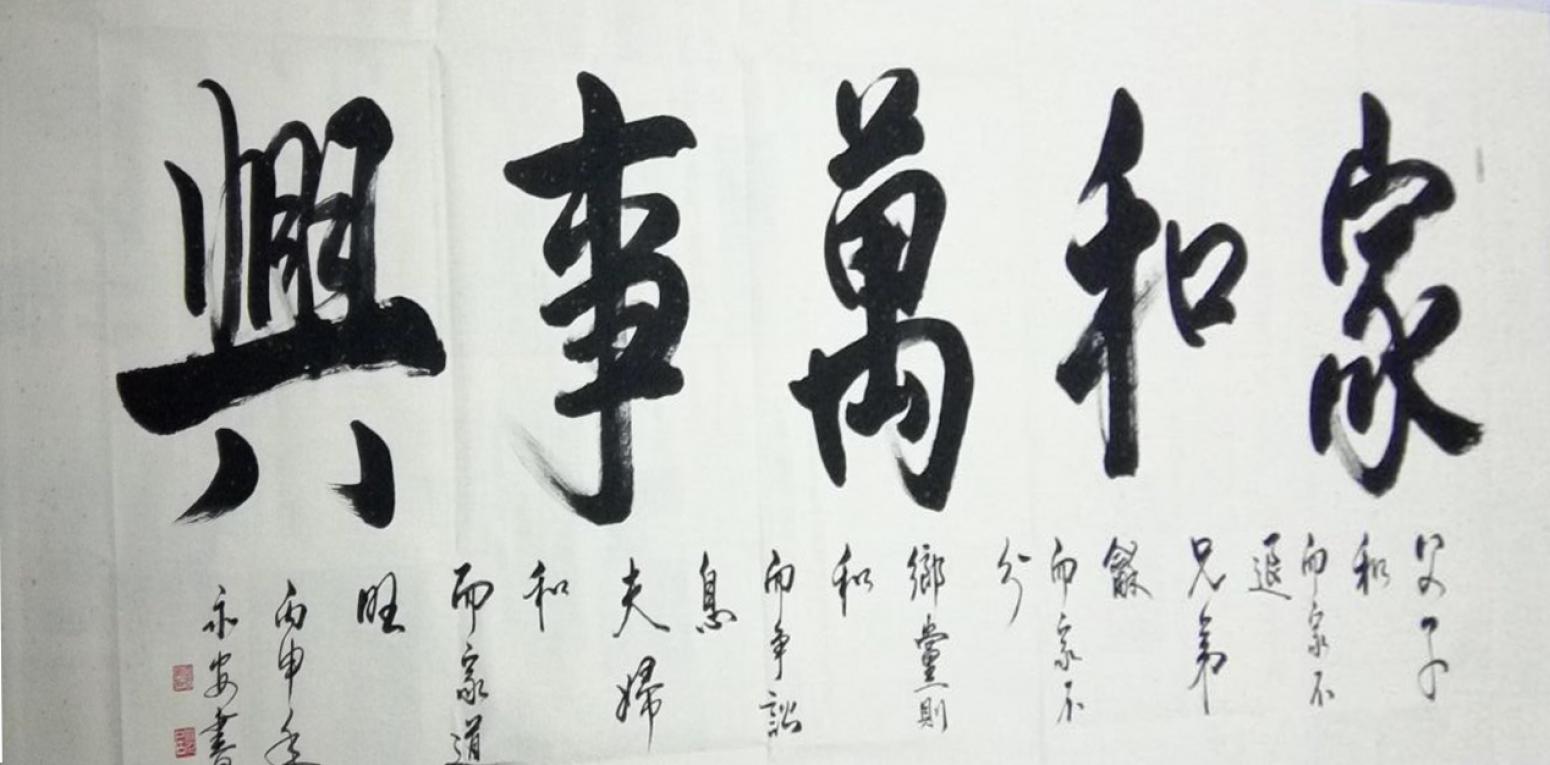 家和萬事興
父子
和
而家不
退
兄弟
龢
而家不
分
鄉黨則
和
而爭訟
息
夫婦
和
而家道
旺
丙申年
永安書